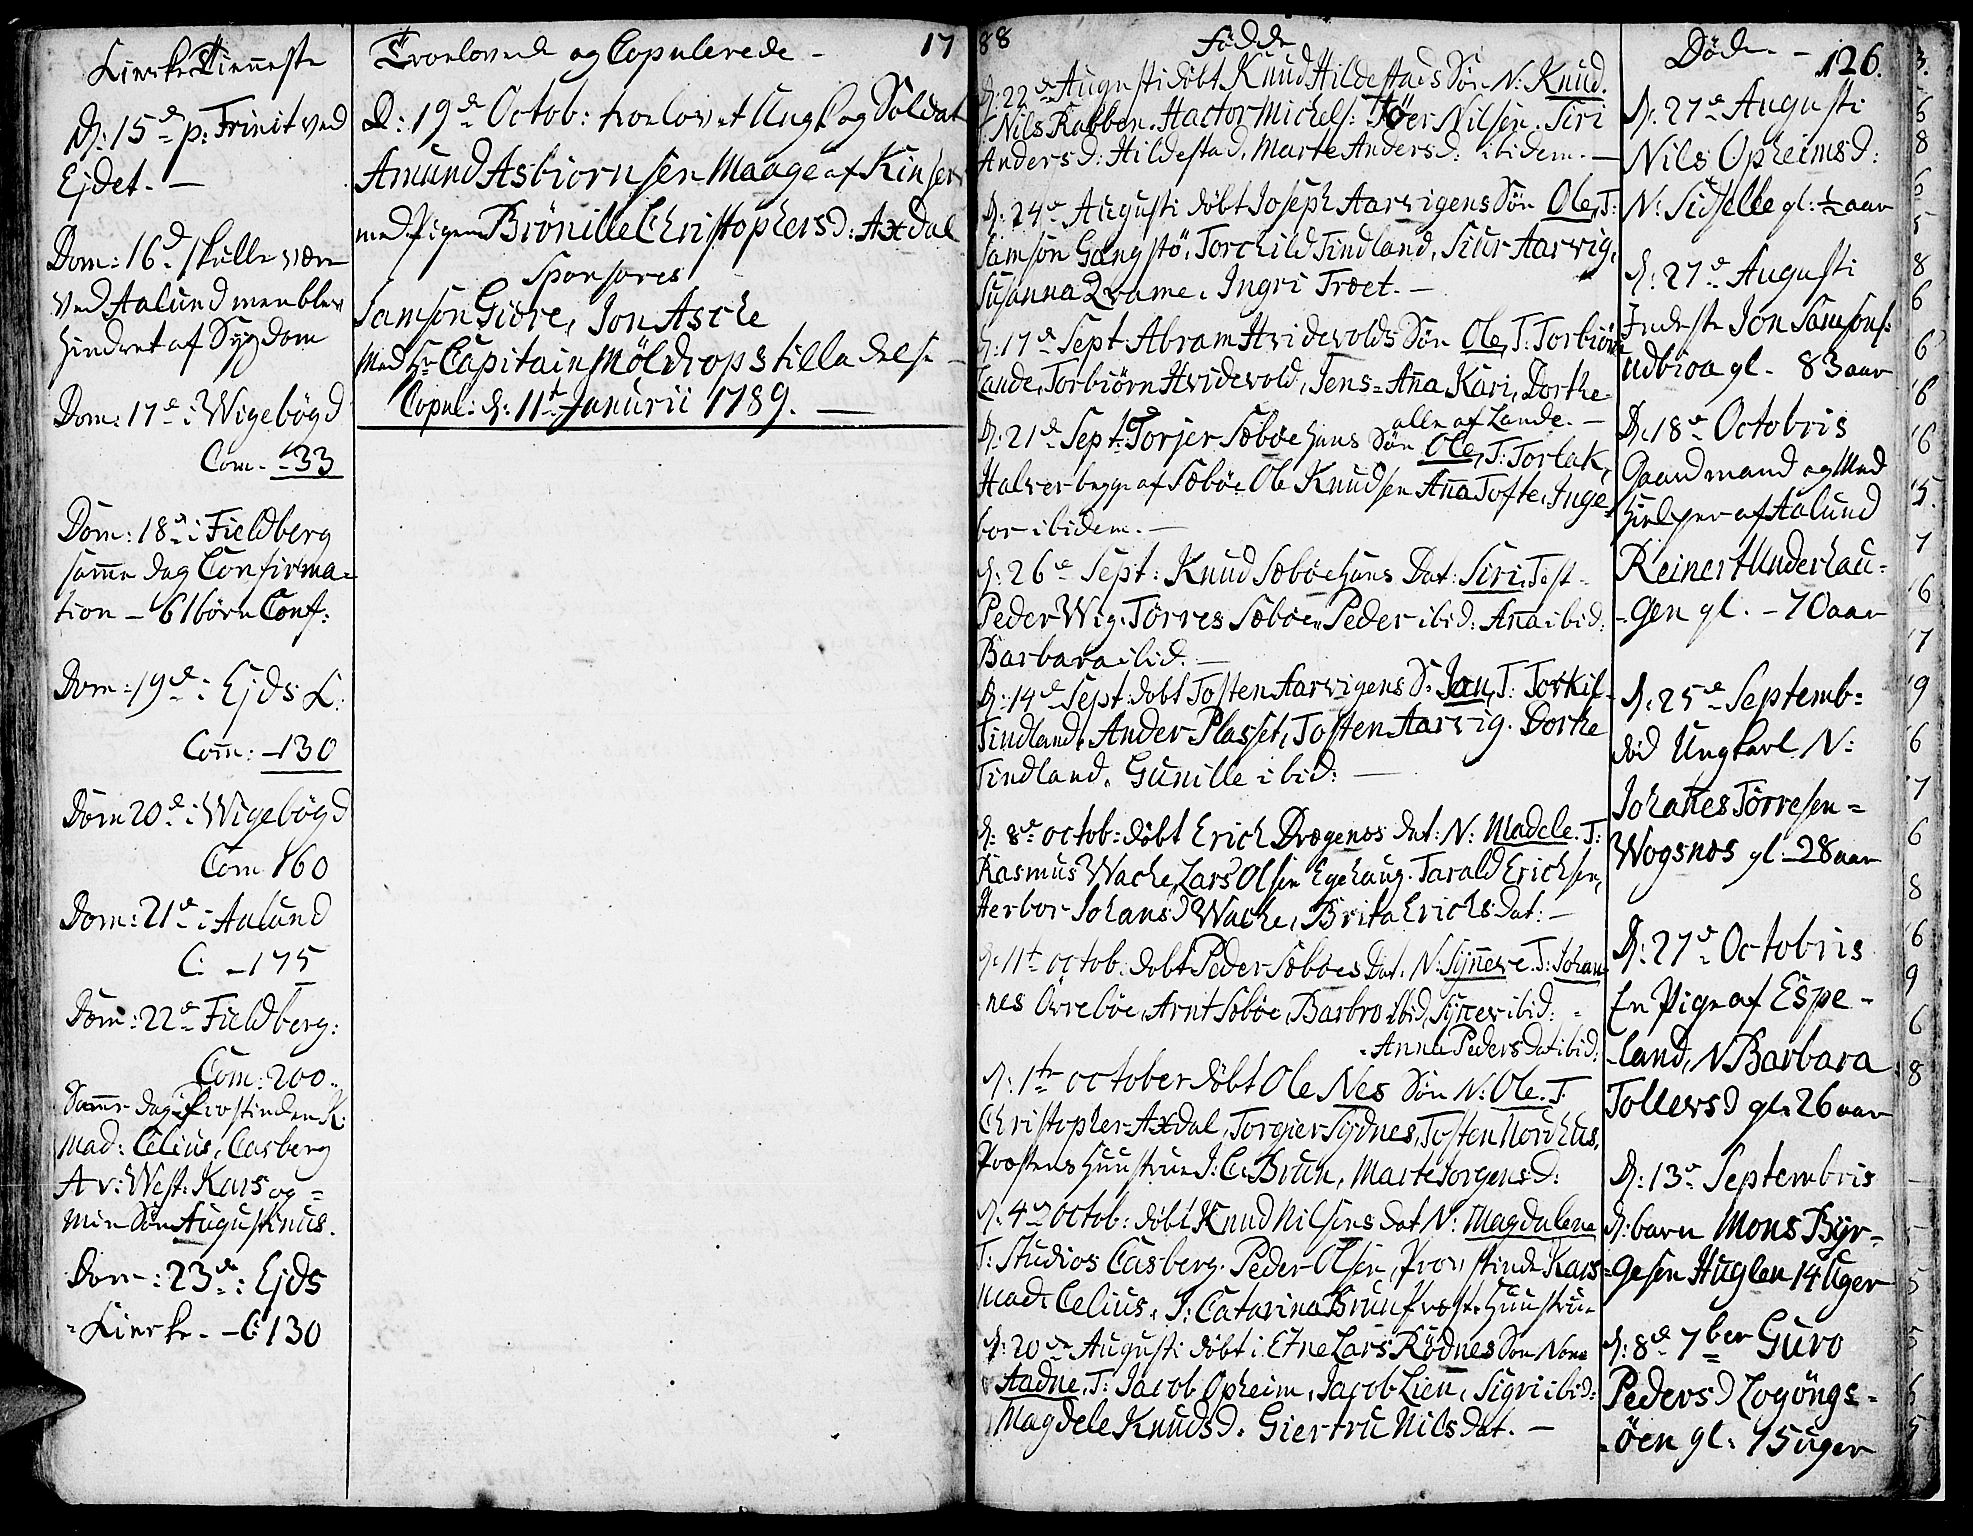 Kirke Tienneste
D: 15de p: Trinit ved
Ejdet. —
Dom: 16d skulle være
ved Aalund men blev
hindret af Sygdom
Dom: 17de i Wigebögd
Com. - 33
Dom: 18d i Fieldberg
samme dag Confirma=
tion - 6 börn Conf:
Dom: 19de : Ejds K:
Com: - 130
Dom 20de i Wigebögd
Com 160
Dom: 21de i Aalund
C: - 175
Dom: 22de Fieldberg:
Com: 200.
Samme dag Provstinden K:
Mad: Celius, Casberg
A v: West: Kars og =
min Sön Augustinus.
Dom: 23de : Ejds
= Kierke. - C: 130
Troelovede og Copulerede - 17
D: 19de Octob: troelovet Ungk og Soldat
Amund Asbiornsen Maage af Kinserv
med Pigen Brönille Christophersd: Axdal
Sponsores
Samson Giöre, Jon Asche
Med Hr Capitain Möldrops tilladelse -
Copul: d: 11t Janurii 1789. —
88 Födde
D: 22de Augusti döbt Knud Hildestads Sön N: Knud.
T: Nils Rabben. Hactor Michels: Töer Nilsen. Siri
Andersd: Hildestad, Marte Andersd: ibidem. —
D: 24de Augusti döbt Joseph Aarvigens Sön Ole, T:
Samson Gangstö, Torchild Tindland, Siur Aarvig,
Susanna Qvame. Ingri Træt. —
D: 17de Sept: Abram Hvidevolds Sön Ole, T: Torbiörn
Lande, Torbiörn Hvidevold, Jens = Ana Kari, Dorthe
alle af Lande. —
D: 21de Sept: Torjer Sæböe hans Sön Ole, T: Torlak,
Halver begge af Sæböe Ole Knudsen Ana Tofte, Inge=
bor ibidem. —
D: 26de Sept: Knud Sæböe hans Dat: Siri, Test-
Peder Wig. Törres Sæböe, Peder ibid: Ana ibid:
Barbara ibid. —
D: 14de Sept: döbt Tosten Aarvigens S. Jon, T: Torkil
Tindland, Ander Plasset, Tosten Aarvig. Dorthe
Tindland. Gunille ibid: —
D: 8de octob: döbt Erich Drægenes dat: N: Madele. T:
Rasmus Wache, Lars Olsen Egehaug. Tarald Erichsen,
Herbor Johansd Wache, Brita Erichs Dat: —
D: 11t octob: döbt Peder Sæböes Dat. N: Synneve. T: Johan
nes Övreböe, Arnt Sæböe, Barbro ibid, Synev ibid: =
- Anna Peders Dat ibid:
D: 1te october döbt Ole Nes Sön N: Ole. T:
Christopher Axdal, Torgier Sydnes, Tosten Nordhus,
Provstens Huustrue J: C: Brun, Marte Jorgensd:
D: 4de octob: döbt Knud Nilsens dat N: Magdalena
T: Studios Casberg. Peder Olsen, Provstinde Kars
Mad: Celius. J: Catarina Brun Præst. Huustrue
D: 20de Augusti döbt i Etne Lars Rödnes Sön Navn
Aadne, T: Jacob Opheim, Jacob Lien, Sigri ibid:
Magdele Knudsd. Giertru Nils Dat. —
Döde - 126.
D: 27de Augusti
Nils Opheims d:
N: Sidselle gl: ½ aar
D: 27de Augusti
Inderste Jon Samsons:
udbioa gl - 83 aar
D: 18de Octobris
Gaardmand og Med
hielper af Aalund
Reinert Underhau=
-gen gl. - 70 aar
D: 25de Septemb=
död Ungkarl N:
Johanes Törresen =
Wogsnos gl: 28 aar
D: 27de Octobris
En Pige af Espe-
-land, N Barbara
Tollevsd gl: 26 aar
D: 13de Septembris
D: barn Mons Byr-
=gesen Huglen 14 Uger
D: 8de 7ber Guro
Pedersd Logöngs=
-öen gl: 15 uger